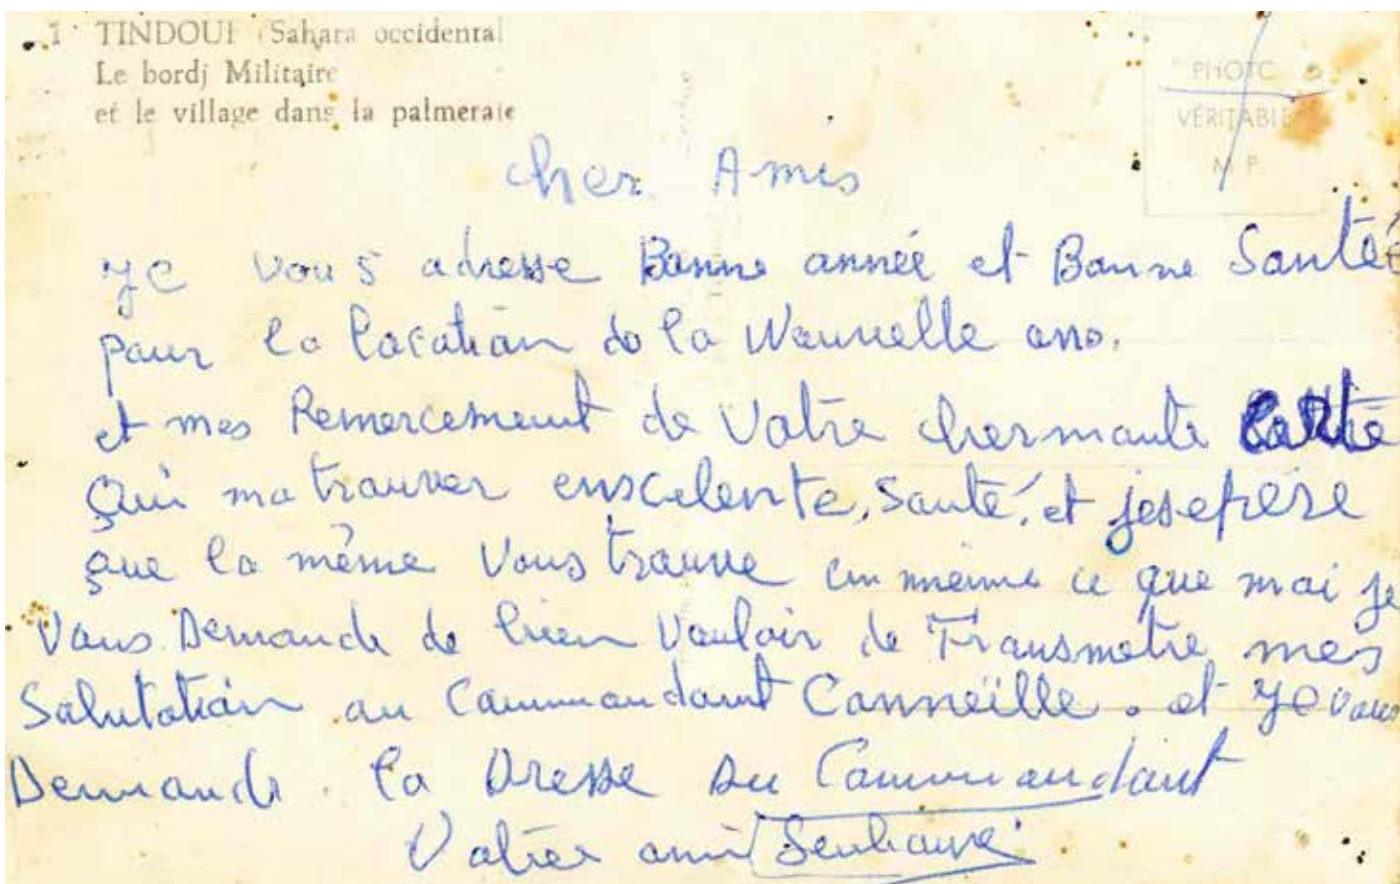 1 TINDOUF (Sahara occidental
Le bordj Militaire
et le village dans la palmeraie
PHOTO
VÉRITABLE
M P
cher Amis
Je vous adresse Bonne année et Bonne Santé
pour la location de la Nouvelle ane.
et mes Remercement de Votre chermante lettre
Qui ma trouver enscelente, Santé, et jesepère
que la même Vous trouve ce que moi je
Vous Demande de bien Vouloir de Transmetre mes
Salutation au Commandant Conneïlle. et Je vous
Demande. la Dresse Du Commandant
Votre ami